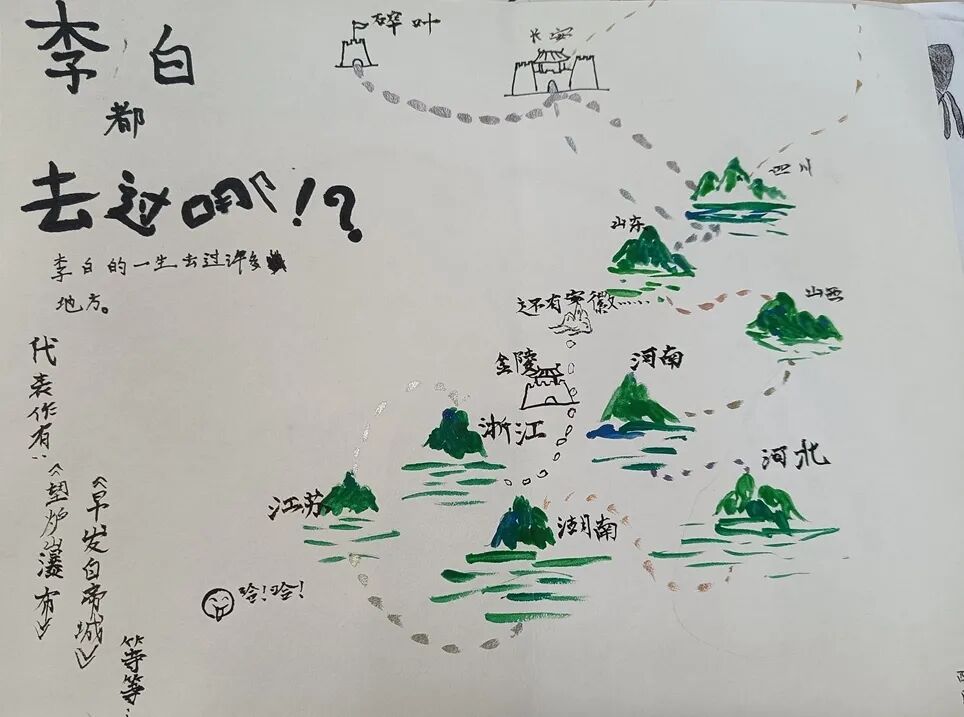 李白
都
去过哪!?
李白的一生去过许多
地方。
代表作有:
《望庐山瀑布》
《早发白帝城》
等等…
碎叶
长安
四川
山东
山西
还有安徽……
金陵
河南
浙江
河北
江苏
湖南
哈!哈!